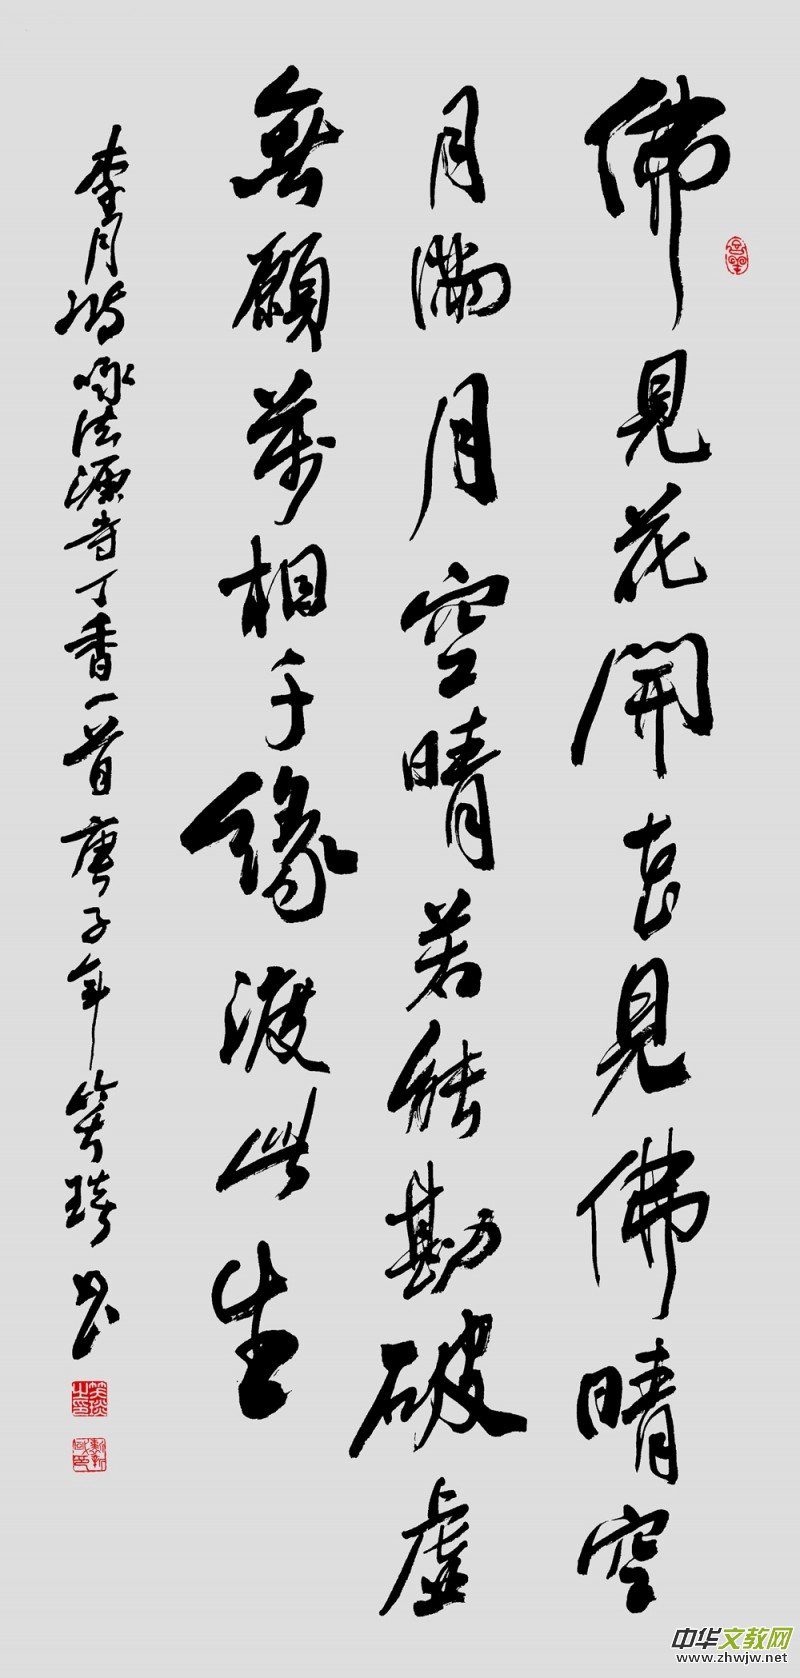 佛見花開花見佛晴空
月滿月空晴若能勘破虛
無願萬相千緣渡此生
李月 咏法源寺丁香一首庚子年笑 書
中华文教网
www.zhwjw.net